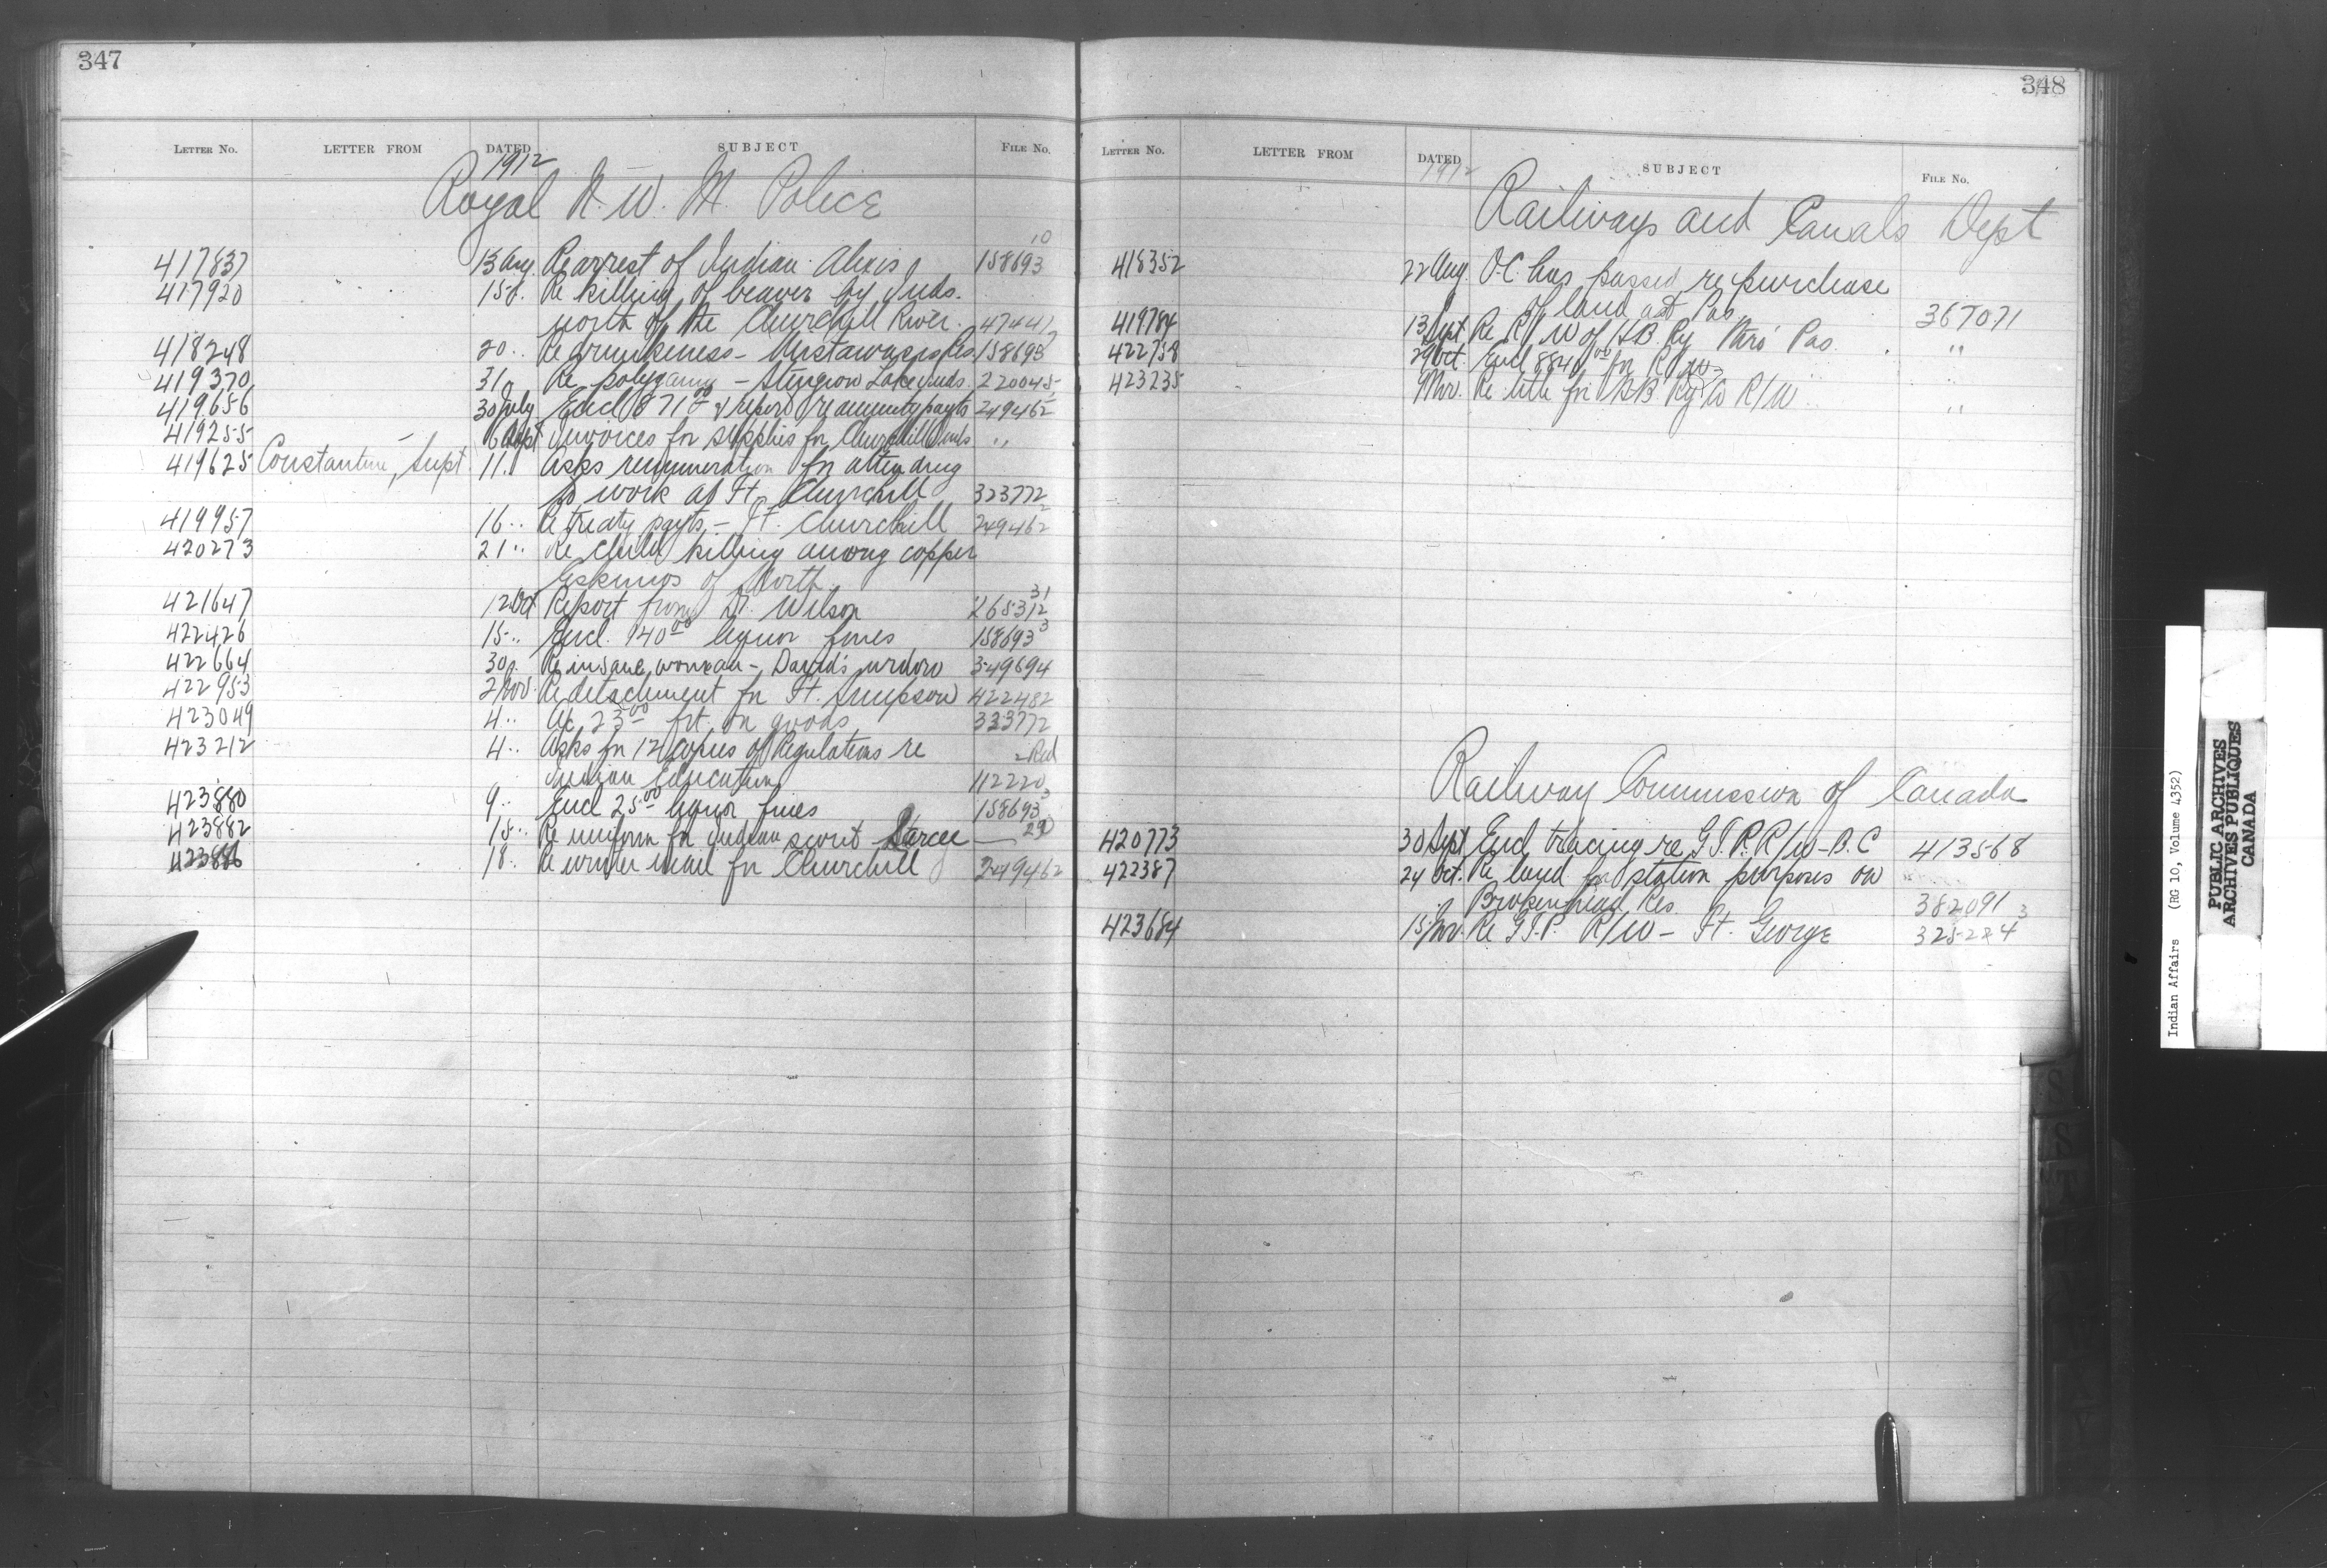 347
LETTER No. LETTER FROM DATED SUBJECT FILE No.
1912
Royal N. W. M. Police
10
417837 13 Aug. Re arrest of Indian Alexis 158693
417920 15 Re killing of beaver by Inds.
north of the Churchill River. 47441
418248 20 " Re drunkeness - Mistawasis Res 158693
419370 31 Re polygamy - Sturgeon Lake Inds. 220045
419656 30 July Encl 871 00 & report re annuity payts 249462
419255 6 Sept Invoices for supplies for Churchill Inds "
419625 Constantine, Supt. 11 Asks remuneration for attending
to work at Ft. Churchill 323772
419957 16 " Re treaty payts - Ft. Churchill 249462
420273 21 " Re child killing among copper
Eskimos of North
421647 12 Oct Report from Dr. Wilson 265312 31
422426 15 " Encl. 140 00 liquor fines 158693 3
422664 30 Re insane woman - David's widow 349694
422953 2 Nov. Re detachment for Ft. Simpson 422482
423049 4 " 23 00 frt. on goods 323772
423212 4 " Asks for 12 copies of Regulations re Red
Indian Education 112220
423880 9 " Encl 25 00 liquor fines 158693 3
423882 15 " Re uniform for Indian scout Sarcee — 29
423886 18 " Re winter mail for Churchill 249462
348
LETTER No. LETTER FROM DATED SUBJECT FILE No.
1912
Railways and Canals Dept
418352 22 Aug. O.C. has passed re purchase
of land at Pas 367071
419784 13 Sept Re R/W of H.B. Ry thro' Pas. "
422758 29 Oct. Encl 8840 00 for R/W "
423235 9 Nov. Re title for H B Ry Co R/W "
Railway Commission of Canada
420773 30 Sept Encl tracing re G.T.P. R/W - B.C 413568
422387 24 Oct. Re land for station purposes on
Brokenhead Res. 382091
423684 15 Nov. Re G.T.P. R/W - Ft. George 325224 3
Indian Affairs (RG 10, Volume 4352)
PUBLIC ARCHIVES
ARCHIVES PUBLIQUES
CANADA